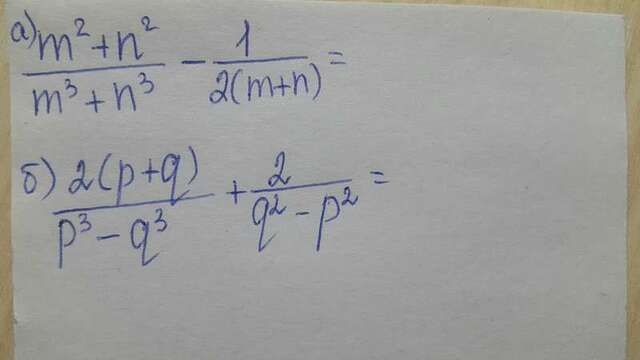 а) (m² + n²)/(m³ + n³) − 1/(2(m+n)) =
б) 2(p+q)/(p³ − q³) + 2/(q² − p²) =